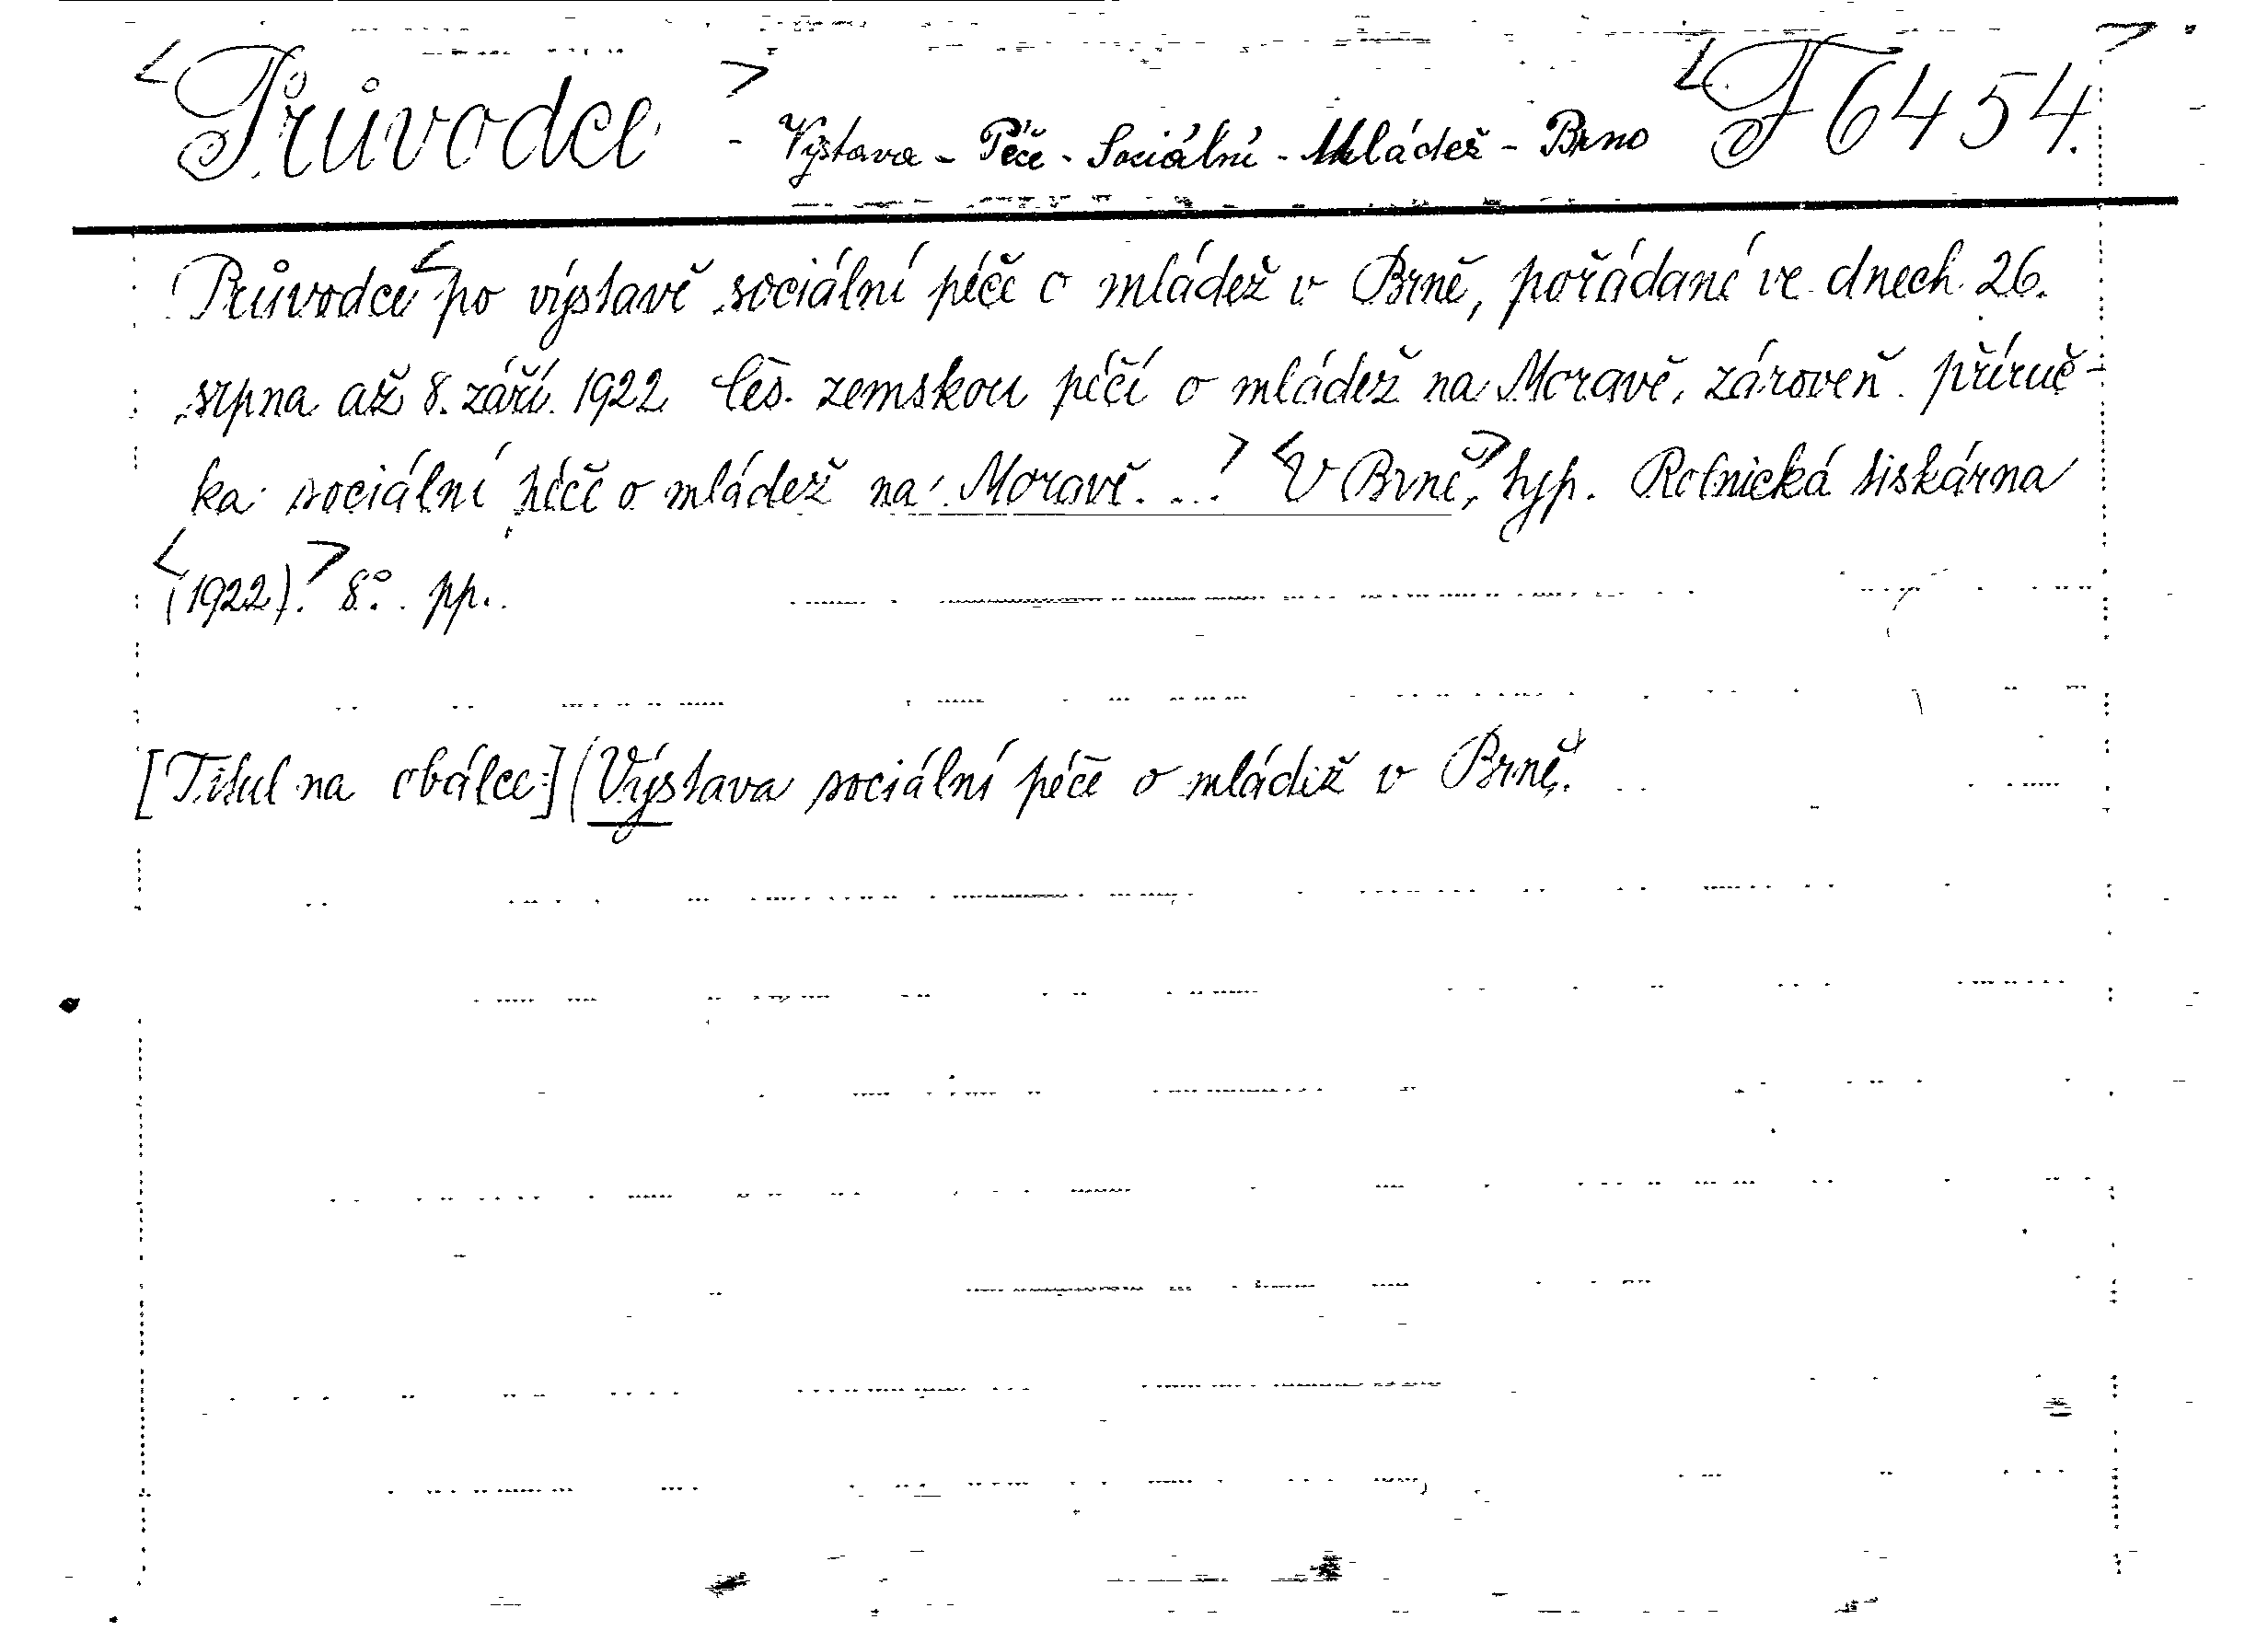 <Průvodce> - Výstava - Péče - Sociální - Mládež - Brno <F 6454.>
Průvodce <po výstavě sociální péče o mládež v Brně, pořádané ve dnech 26.
srpna až 8. září 1922 Čes. zemskou péčí o mládež na Moravě, zároveň příruč-
ka sociální péče o mládež na Moravě. ...> <V Brně,> typ. Rolnická tiskárna
<(1922).> 8°. pp.
[Titul na obálce:] (Výstava sociální péče o mládež v Brně.)